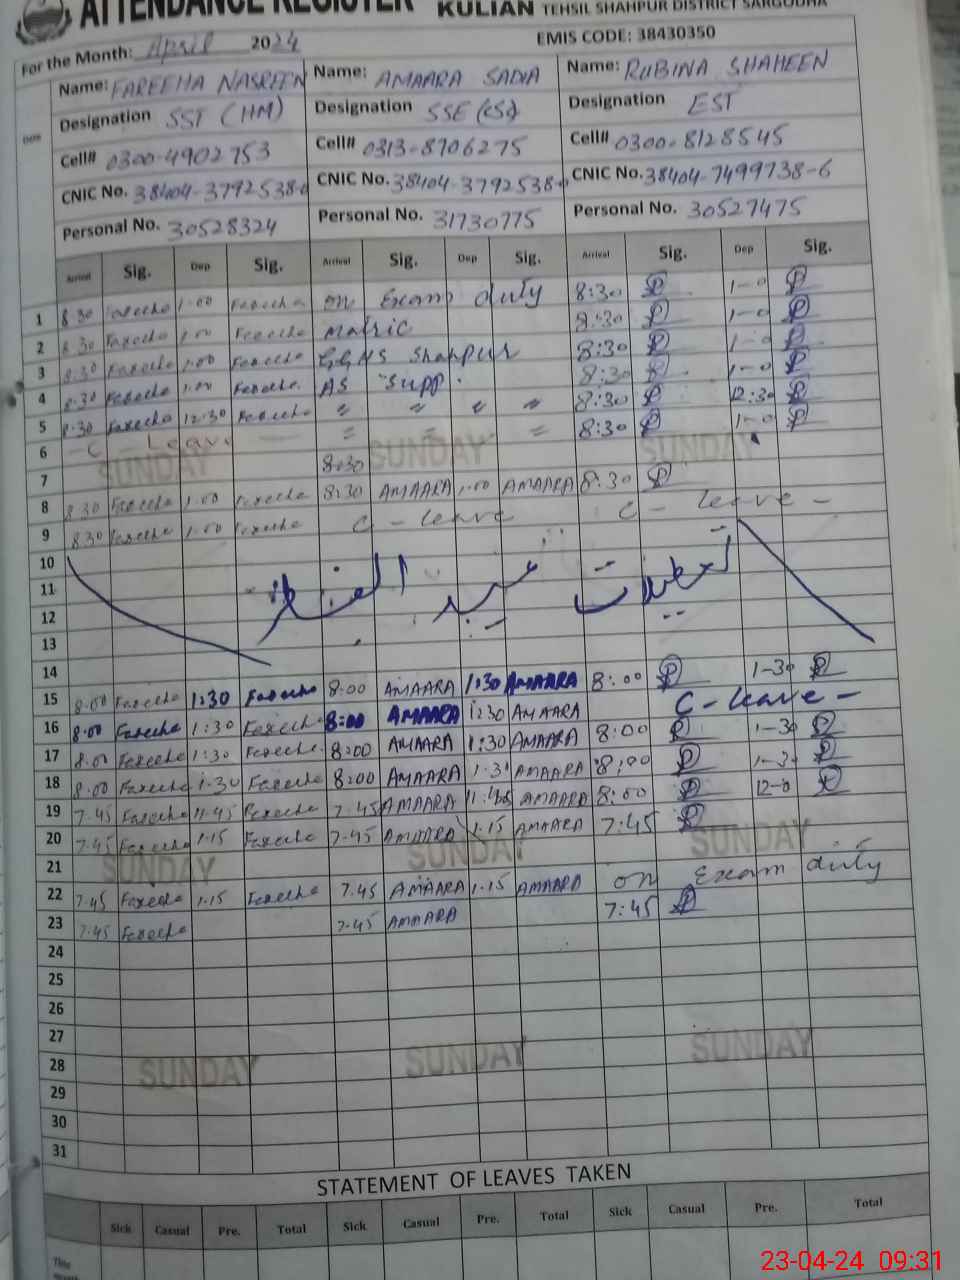 ATTENDANCE REGISTER KULIAN TEHSIL SHAHPUR DISTRICT SARGODHA
For the Month: April 2024 EMIS CODE: 38430350
Name: FAREEHA NASREEN Name: AMAARA SADIA Name: RUBINA SHAHEEN
Designation SST (HM) Designation SSE (CS) Designation EST
Cell# 0300-4902753 Cell# 0313-8706275 Cell# 0300-8128545
CNIC No. 38404-3792538-0 CNIC No. 38404-3792538-0 CNIC No. 38404-7499738-6
Personal No. 30528324 Personal No. 31730775 Personal No. 30527475
Arrival Sig. Dep Sig. Arrival Sig. Dep Sig. Arrival Sig. Dep Sig.
1 8:30 Fareeha 1:00 Fareeha on Exam duty 8:30 1-0
2 8:30 Fareeha 1:00 Fareeha Matric 8:30 1-0
3 8:30 Fareeha 1:00 Fareeha GGHS Shahpur 8:30 1-0
4 8:30 Fareeha 1:00 Fareeha AS Supp. 8:30 1-0
5 8:30 Fareeha 12:30 Fareeha 〃 〃 〃 〃 8:30 12:30
6 - C - Leave - 〃 〃 〃 8:30 1-0
7 SUNDAY 8:30 SUNDAY SUNDAY
8 8:30 Fareeha 1:00 Fareeha 8:30 AMAARA 1:00 AMAARA 8:30
9 8:30 Fareeha 1:00 Fareeha C - leave C - leave -
10
11 تعطیلات عید الفطر
12
13
14
15 8:00 Fareeha 1:30 Fareeha 8:00 AMAARA 1:30 AMAARA 8:00 1-30
16 8:00 Fareeha 1:30 Fareeha 8:00 AMAARA 1:30 AMAARA C- leave -
17 8:00 Fareeha 1:30 Fareeha 8:00 AMAARA 1:30 AMAARA 8:00 1-30
18 8:00 Fareeha 1:30 Fareeha 8:00 AMAARA 1:31 AMAARA 8:00 1-30
19 7:45 Fareeha 11:45 Fareeha 7:45 AMAARA 11:45 AMAARA 8:00 12-0
20 7:45 Fareeha 1:15 Fareeha 7:45 AMAARA 1:15 AMAARA 7:45
21 SUNDAY SUNDAY SUNDAY
22 7:45 Fareeha 1:15 Fareeha 7:45 AMAARA 1:15 AMAARA on Exam duty
23 7:45 Fareeha 7:45 AMAARA 7:45
24
25
26
27
28 SUNDAY SUNDAY SUNDAY
29
30
31
STATEMENT OF LEAVES TAKEN
Sick Casual Pre. Total Sick Casual Pre. Total Sick Casual Pre. Total
This
23-04-24 09:31